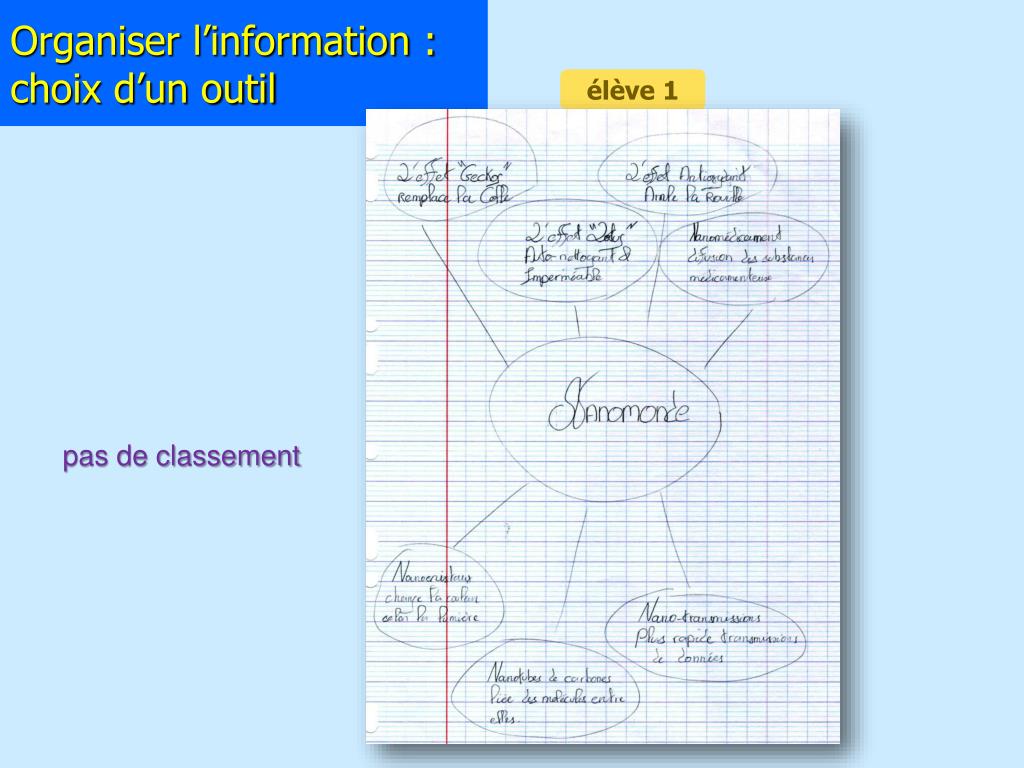 Organiser l’information :
choix d’un outil
élève 1
L'effet "Geckos"
remplace la Colle
L'effet Antioxydant
Arrête la Rouille
L'effet "Lotus"
Auto-nettoyant &
Imperméable
Nanomédicament
difusion des substances
médicamenteuse
Nanomonde
pas de classement
Nanocristaux
change la
selon la lumière
Nano-transmissions
Plus rapide transmissions
de données
Nanotubes de carbones
des molécules entre
elles.